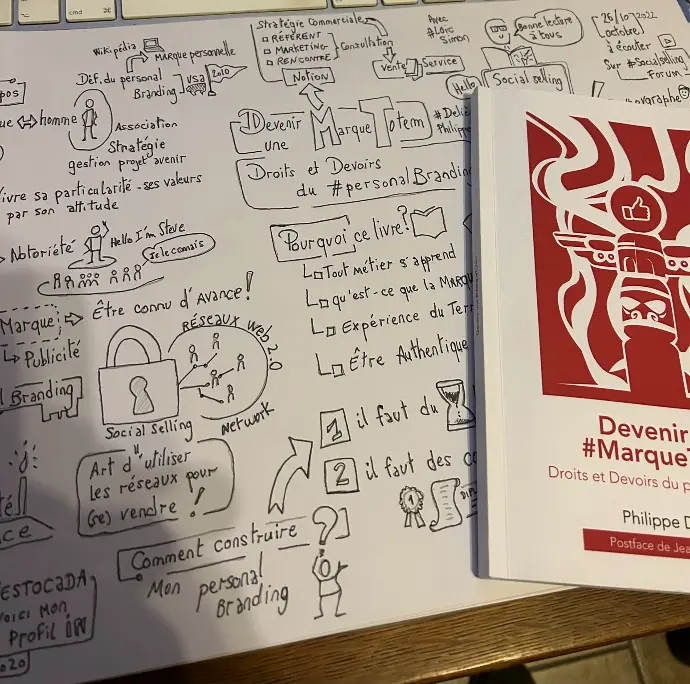 Stratégie Commerciale
RÉFÉRENT
MARKETING
RENCONTRE
Consultation
Notion
Avec
#Loïc
Simon
Vente
Service
Hello
Bonne lecture
à tous
Social selling
25/10/2022
(octobre)
à écouter
Sur #Socialselling
Forum
Wikipédia
MARQUE personnelle
Déf. du personal
Branding
USA
2010
homme
Association
Stratégie
gestion projet avenir
vivre sa particularité - ses valeurs
par son attitude
Devenir
une
Marque Totem
Philippe
Droits et Devoirs
du #personalBranding
Notoriété
Hello I'm Steve
je le connais
Marque
Être connu d'Avance!
Publicité
Branding
RÉSEAUX Web 2.0
Social Selling
Network
Pourquoi ce livre?
Tout métier s'apprend
qu'est-ce que la MARQUE
Expérience du
Être Authentique
1 il faut du
2 il faut des
1
Art d'utiliser
les réseaux pour
(se) vendre !
Comment construire ?
Mon personal
Branding
ESTOCADA
VOICI MON
Profil in
2020
Devenir
#Marque
Droits et Devoirs du p
Philippe D
Postface de Jea